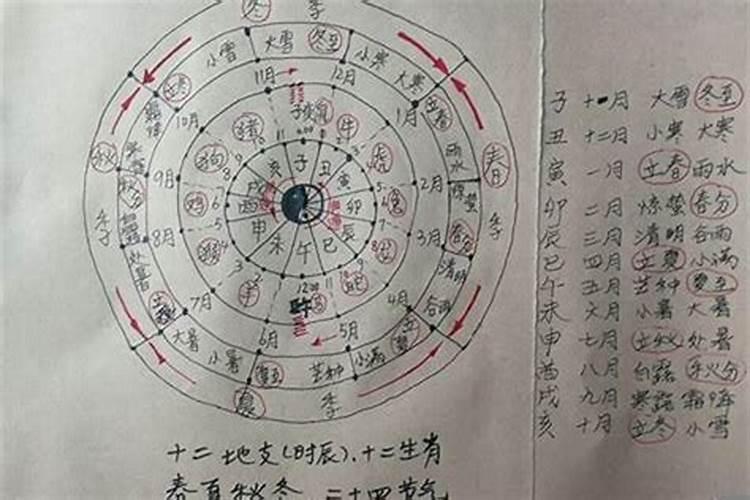 冬 季
小雪 大雪 冬至 小寒 大寒
立冬 11月 12月 立春
10月 子 鼠 1月
猪 牛
秋 狗 亥 子 丑 虎 雨水 春
9月 戌 寅 2月
秋分 鸡 酉 卯 兔 惊蛰
季 8月 申 辰 3月 春分 季
处暑 猴 未 午 巳 龙 清明
羊 12:00 蛇
立秋 7月 午 马 4月 谷雨
大暑 6月 5月 立夏
小暑 夏至 芒种 小满
夏 季
子 十一月 大雪 冬至
丑 十二月 小寒 大寒
寅 一月 立春 雨水
卯 二月 惊蛰 春分
辰 三月 清明 谷雨
巳 四月 立夏 小满
午 五月 芒种 夏至
未 六月 小暑 大暑
申 七月 立秋 处暑
酉 八月 白露 秋分
戌 九月 寒露 霜降
亥 十月 立冬 小雪
十二地支(时辰)、十二生肖
春夏秋冬 二十四节气